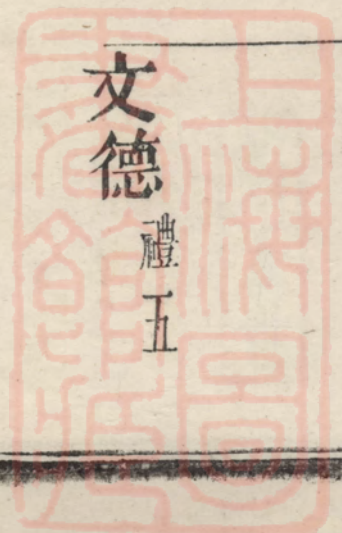 文德
禮五
上海圖
書館藏